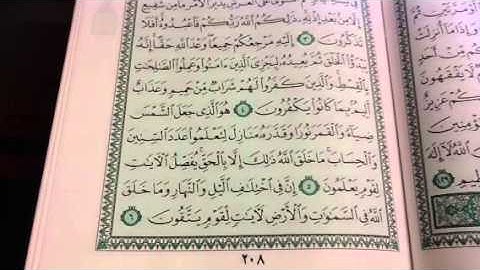 عَلَى ٱلْعَرْشِ يُدَبِّرُ ٱلْأَمْرَ مَا مِن شَفِيعٍ
إِلَّا مِنۢ بَعْدِ إِذْنِهِۦ ذَٰلِكُمُ ٱللَّهُ رَبُّكُمْ فَٱعْبُدُوهُ أَفَلَا
تَذَكَّرُونَ ٣ إِلَيْهِ مَرْجِعُكُمْ جَمِيعًا وَعْدَ ٱللَّهِ حَقًّا إِنَّهُۥ
يَبْدَؤُا۟ ٱلْخَلْقَ ثُمَّ يُعِيدُهُۥ لِيَجْزِىَ ٱلَّذِينَ ءَامَنُوا۟ وَعَمِلُوا۟ ٱلصَّٰلِحَٰتِ
بِٱلْقِسْطِ وَٱلَّذِينَ كَفَرُوا۟ لَهُمْ شَرَابٌ مِّنْ حَمِيمٍ وَعَذَابٌ
أَلِيمٌۢ بِمَا كَانُوا۟ يَكْفُرُونَ ٤ هُوَ ٱلَّذِى جَعَلَ ٱلشَّمْسَ
ضِيَآءً وَٱلْقَمَرَ نُورًا وَقَدَّرَهُۥ مَنَازِلَ لِتَعْلَمُوا۟ عَدَدَ ٱلسِّنِينَ
وَٱلْحِسَابَ مَا خَلَقَ ٱللَّهُ ذَٰلِكَ إِلَّا بِٱلْحَقِّ يُفَصِّلُ ٱلْءَايَٰتِ
لِقَوْمٍ يَعْلَمُونَ ٥ إِنَّ فِى ٱخْتِلَٰفِ ٱلَّيْلِ وَٱلنَّهَارِ وَمَا خَلَقَ
ٱللَّهُ فِى ٱلسَّمَٰوَٰتِ وَٱلْأَرْضِ لَءَايَٰتٍ لِّقَوْمٍ يَتَّقُونَ ٦
٢٠٨